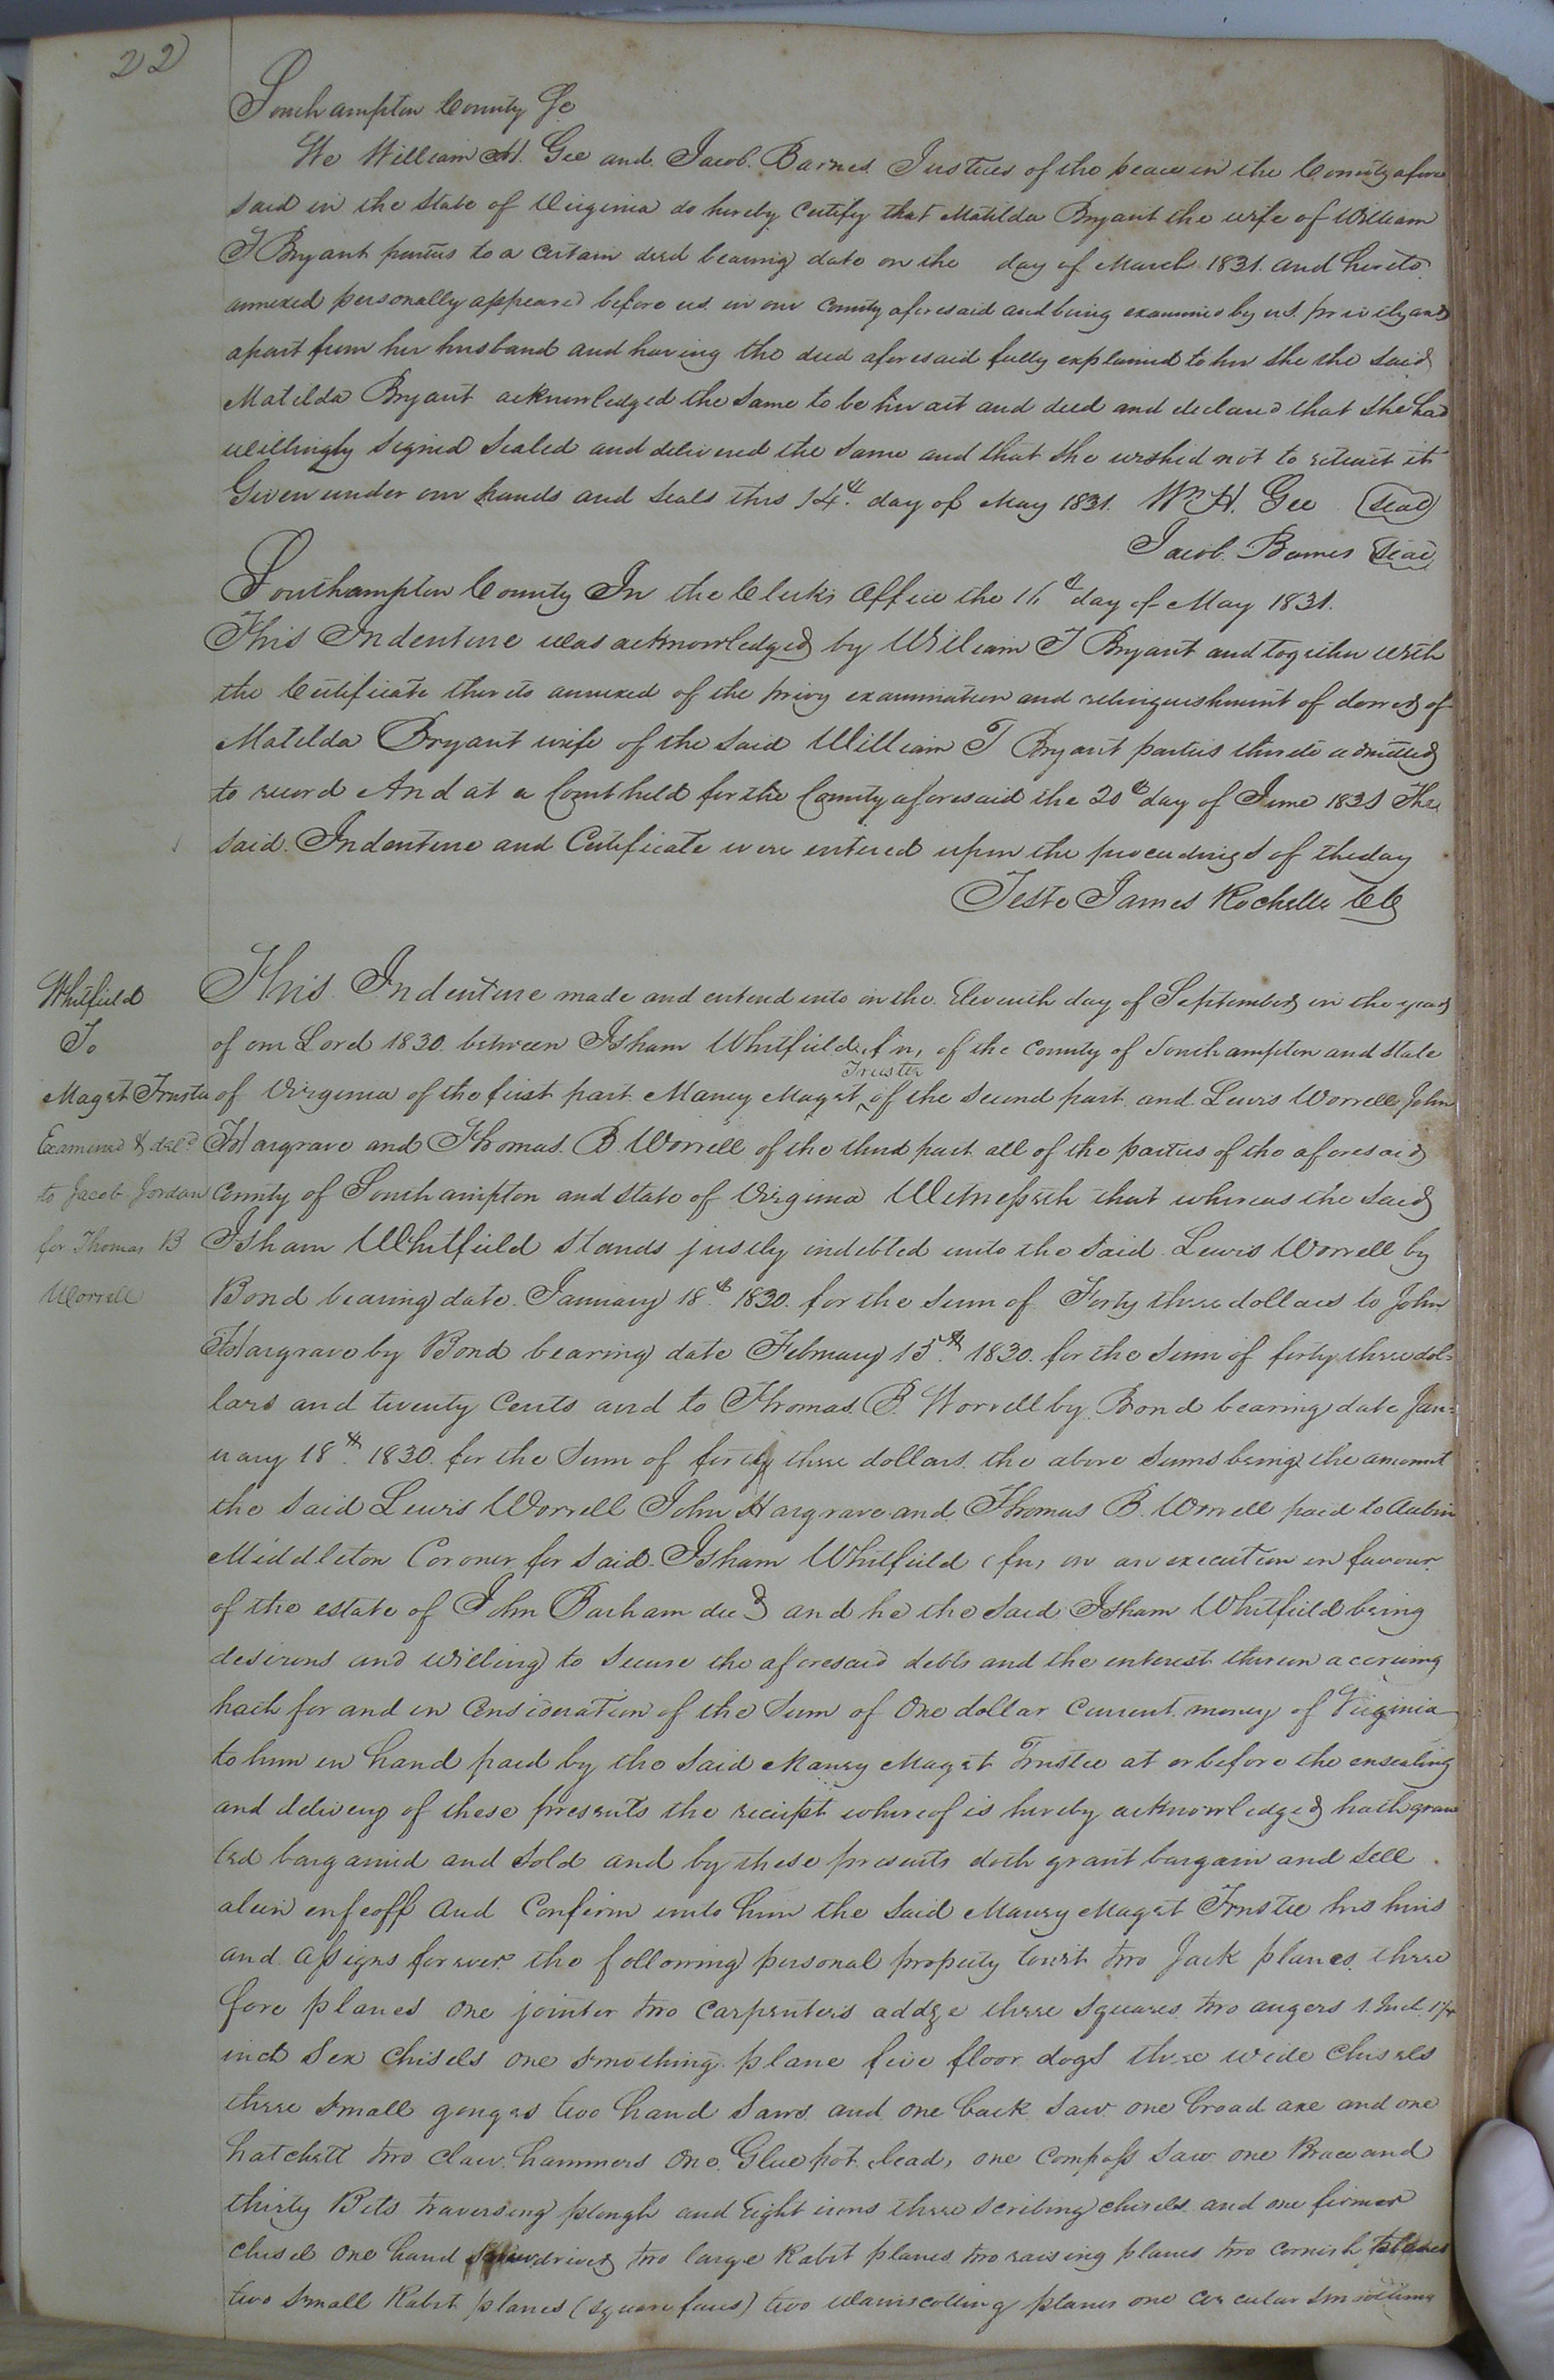 22
Southampton County Sc
We William H. Gee and Jacob Barnes Justices of the peace in the County afore
said in the State of Virginia do hereby Certify that Matilda Bryant the wife of William
T Bryant parties to a certain deed bearing date on the day of March 1831. and hereto
annexed personally appeared before us in our County aforesaid and being examined by us privily and
apart from her husband and having the deed aforesaid fully explained to her she the said
Matilda Bryant acknowledged the same to be her act and deed and declared that she had
willingly signed sealed and delivered the same and that she wished not to retract it
Given under our hands and seals this 14th day of May 1831. Wm H. Gee (seal)
Jacob Barnes (seal)
Southampton County In the Clerks Office the 16th day of May 1831.
This Indenture was acknowledged by William T Bryant and together with
the Certificate thereto annexed of the privy examination and relinquishment of dower of
Matilda Bryant wife of the said William T Bryant parties thereto admitted
to record And at a Court held for the County aforesaid the 20th day of June 1831 The
said Indenture and Certificate were entered upon the proceedings of the day
Teste James Rochelle CC
Whitfield
To
Maget Trustee
Examined & deld
to Jacob Jordan
for Thomas B
Worrell
This Indenture made and entered into on the Eleventh day of September in the year
of our Lord 1830. between Isham Whitfield (fn) of the County of Southampton and State
of Virginia of the first part Maney Maget Trustee of the second part and Lewis Worrell John
Hargrave and Thomas B. Worrell of the third part all of the parties of the aforesaid
County of Southampton and State of Virginia Witnesseth that whereas the said
Isham Whitfield stands justly indebted unto the said Lewis Worrell by
Bond bearing date January 18th 1830. for the sum of Forty three dollars to John
Hargrave by Bond bearing date February 15th 1830. for the sum of forty three dol=
lars and twenty Cents and to Thomas B. Worrell by Bond bearing date Jan=
uary 18th 1830. for the Sum of forty three dollars the above sums being the amount
the said Lewis Worrell John Hargrave and Thomas B. Worrell paid to
Middleton Coroner for said Isham Whitfield (fn) on an execution in favour
of the estate of John Barham decd and he the said Isham Whitfield being
desirous and willing to secure the aforesaid debts and the interest thereon accruing
hath for and in Consideration of the Sum of One dollar Current money of Virginia
to him in hand paid by the said Maney Maget Trustee at or before the ensealing
and delivery of these presents the receipt whereof is hereby acknowledged hath gran
ted bargained and sold and by these presents doth grant bargain and sell
alein enfeoff and Confirm unto him the said Maney Maget Trustee his heirs
and assigns forever the following personal property towit two Jack planes three
fore planes one jointer two carpenters addze three squares two augers 1. Inch 1/4
inch Six chisels one smothing plane five floor dogs three wide chisels
three small gouges two hand saws and one back saw one broad axe and one
hatchett two claw hammers One Glue pot (lead) one compass saw one Brace and
thirty Bits traversing plough and Eight irons three scribing chisels and one firmer
chisel one hand screwdriver two large Rabit planes two raising planes two cornish planes
two small Rabit planes (square faces) two wainscotting planes one circular smoothing